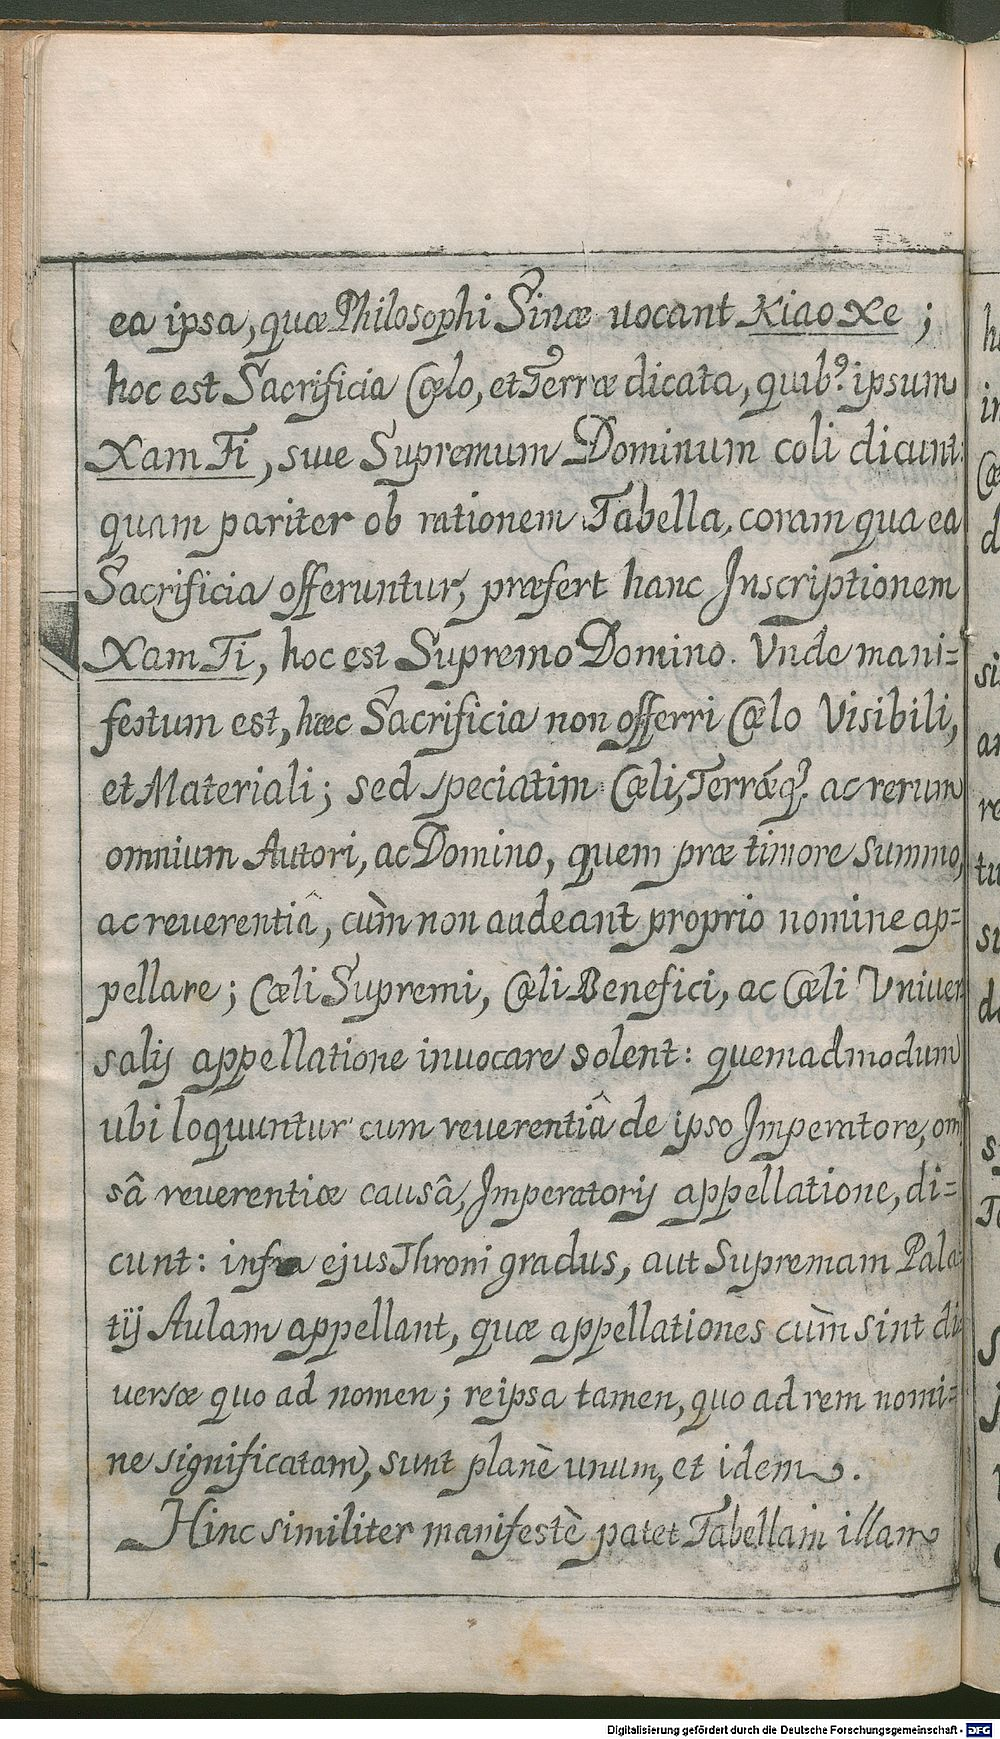 ea ipsa, quæ Philosophi Sinæ uocant Kiao Xe ;
hoc est Sacrificia Cœlo, et Terræ dicata, quibꝰ ipsum
Xam Ti, siue Supremum Dominum coli dicunt:
quam pariter ob rationem Tabella, coram qua ea
Sacrificia offeruntur, præfert hanc Inscriptionem
Xam Ti, hoc est Supremo Domino. Vnde mani=
festum est, hæc Sacrificia non offerri Cœlo Visibili,
et Materiali; sed speciatim Cœli, Terræq́; ac rerum
omnium Autori, ac Domino, quem præ timore summo,
ac reuerentiâ, cùm non audeant proprio nomine ap=
pellare; Cœli Supremi, Cœli Benefici, ac Cœli Vniuer
salis appellatione inuocare solent: quemadmodum
ubi loquuntur cum reuerentiâ de ipso Imperatore, omis
sâ reuerentiæ causâ, Imperatoris appellatione, di=
cunt: infra ejus Throni gradus, aut Supremam Pala
tij Aulam appellant, quæ appellationes cùm sint di
uersæ quo ad nomen; reipsa tamen, quo ad rem nomi=
ne significatam, sunt planè unum, et idem.
Hinc similiter manifestè patet Tabellam illam
Digitalisierung gefördert durch die Deutsche Forschungsgemeinschaft - DFG